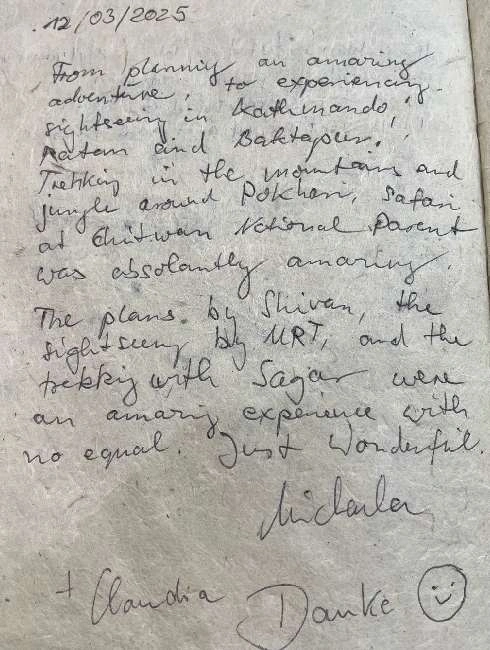 12/03/2025
From planning an amazing
adventure, to experiencing
sightseeing in Kathmando,
Patan and Baktapur.
Trekking in the mountains and
jungle around Pokhari, Safari
at Chitwan National Parent
was absolantly amazing.
The plans by Shivan, the
sightseeing by MRT, and the
trekking with Sagar were
an amazing experience with
no equal. Just Wonderful.
Michaela
+ Claudia Danke